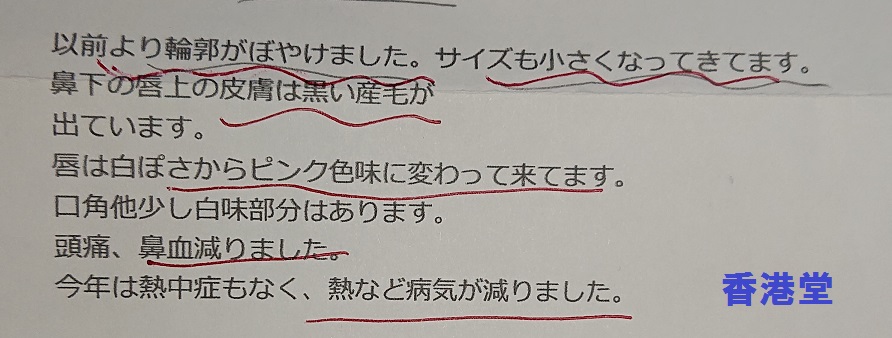 以前より輪郭がぼやけました。サイズも小さくなってきてます。
鼻下の唇上の皮膚は黒い産毛が
出ています。
唇は白ぽさからピンク色味に変わって来てます。
口角他少し白味部分はあります。
頭痛、鼻血減りました。
今年は熱中症もなく、熱など病気が減りました。
香港堂